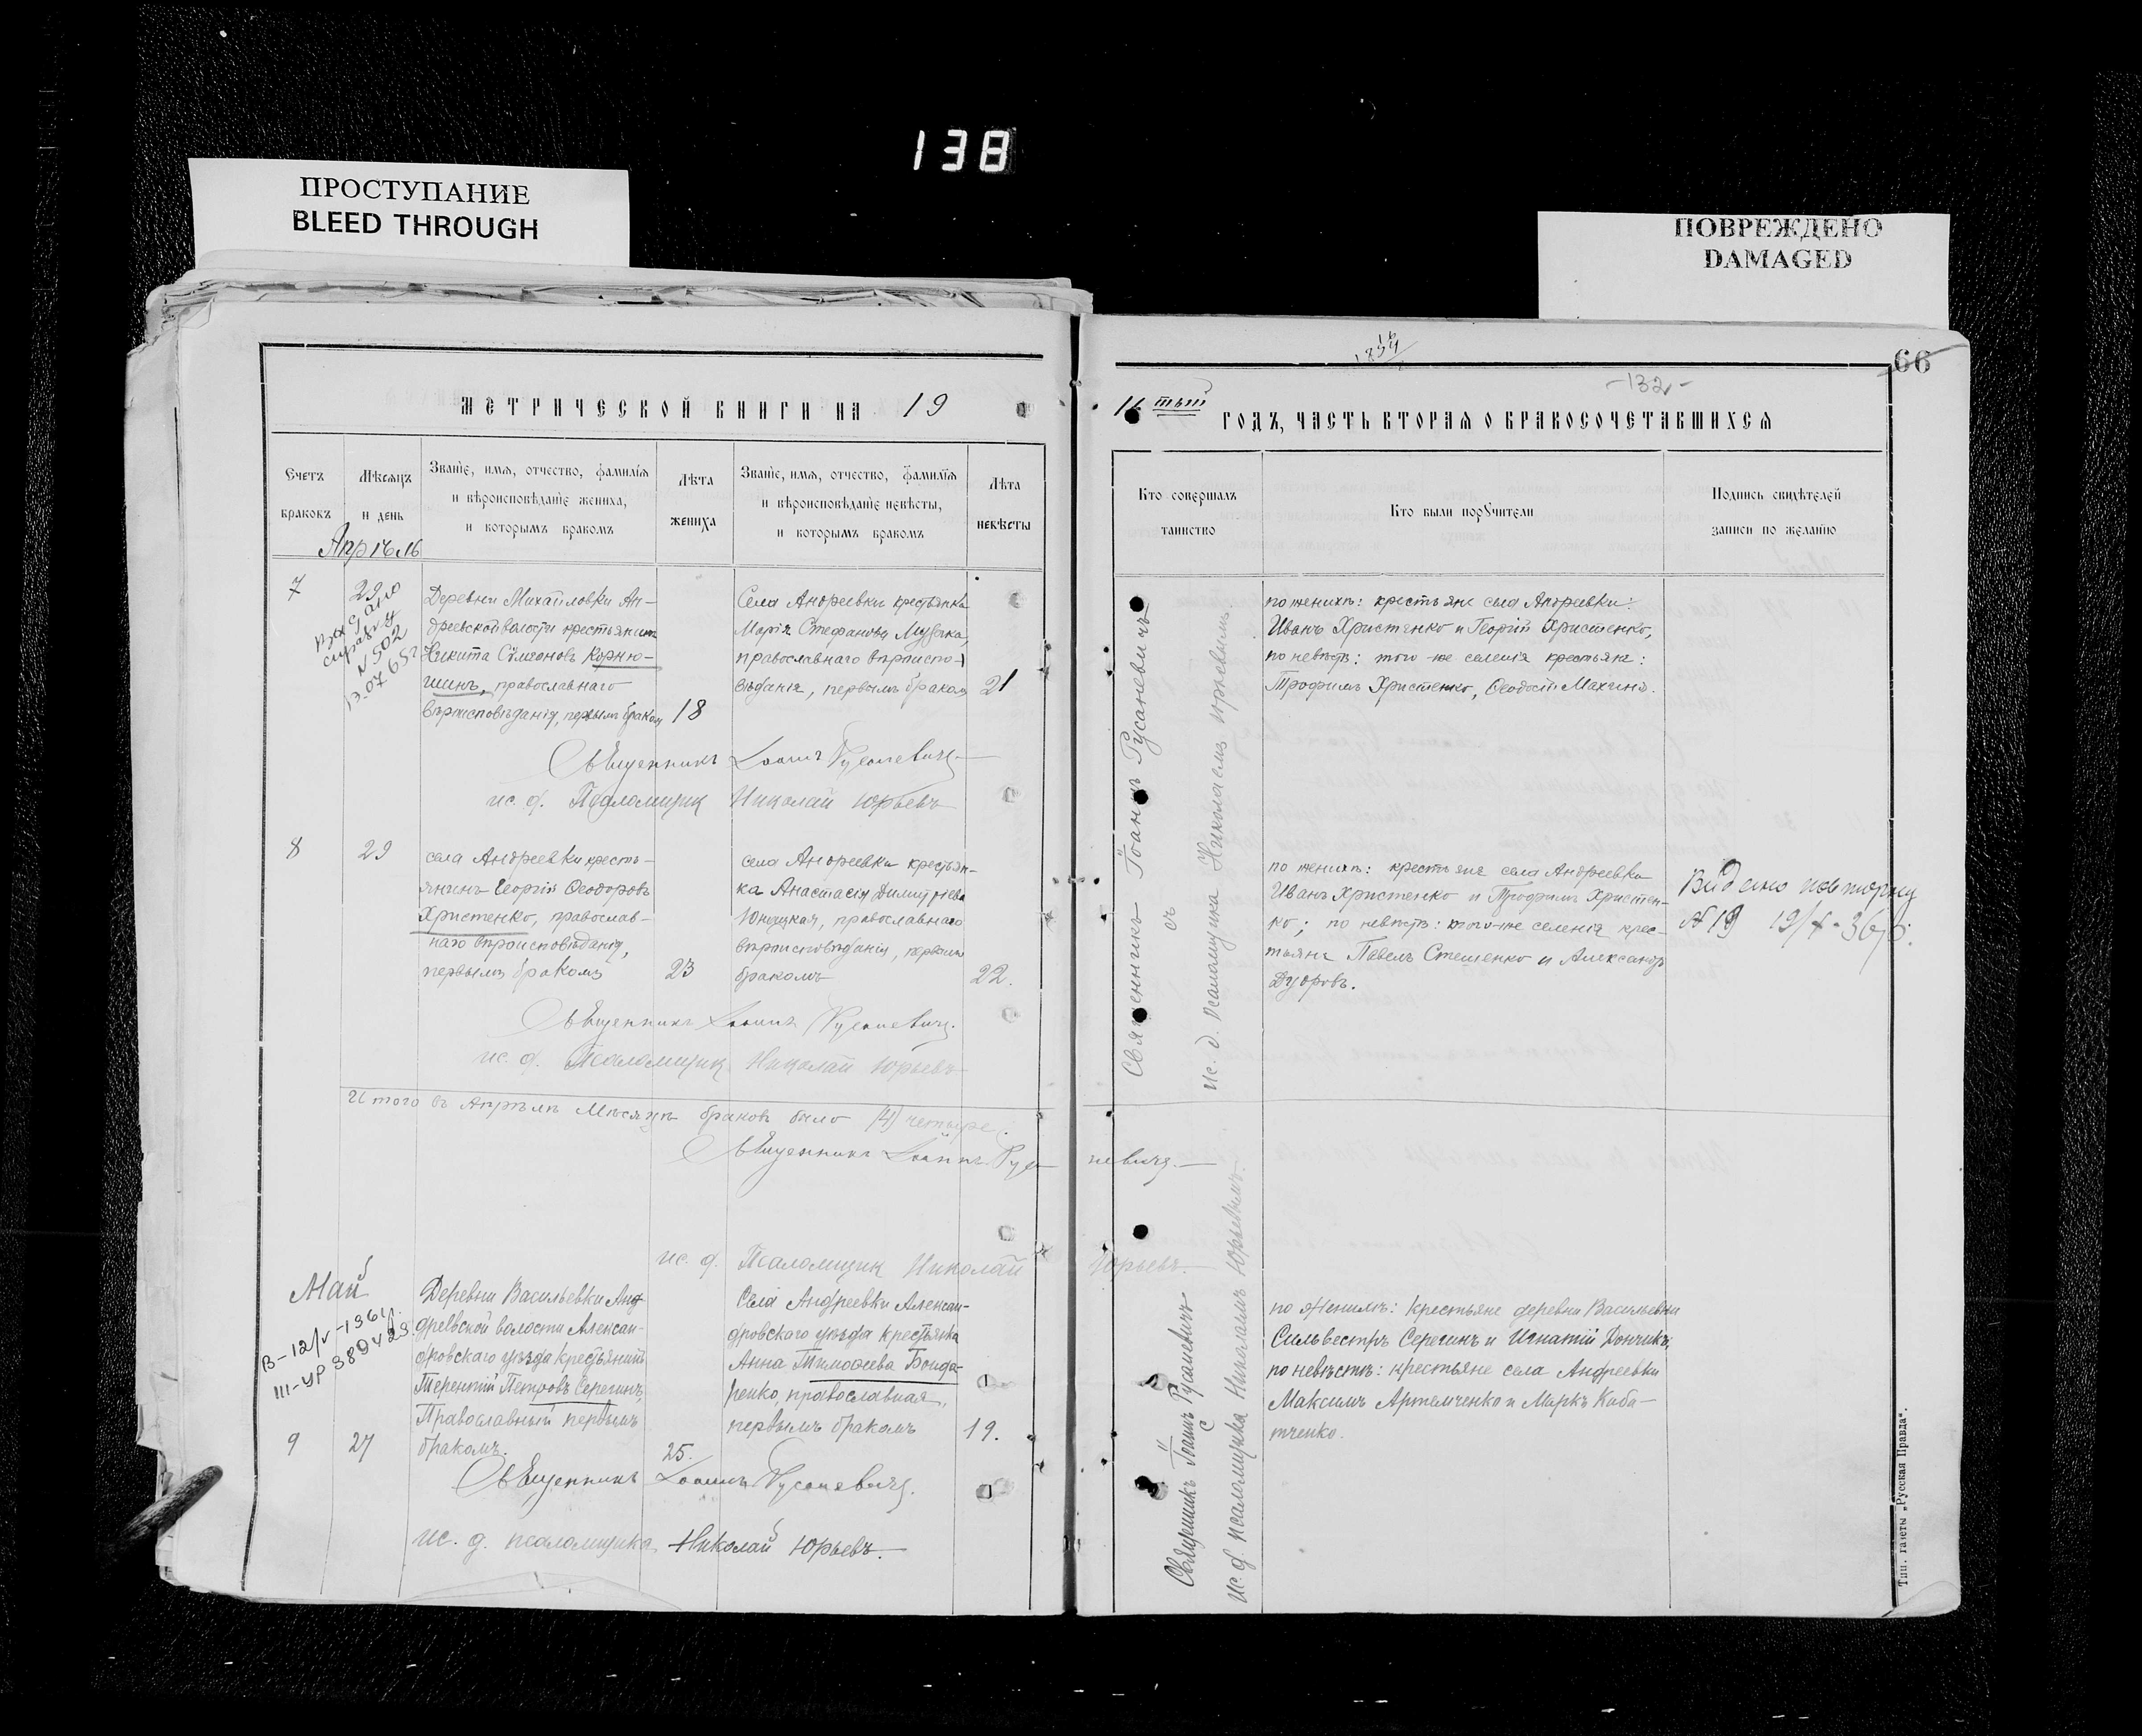 138
ПРОСТУПАНИЕ
BLEED THROUGH
ПОВРЕЖДЕНО
DAMAGED
66
-132-
МЕТРИЧЕСКОЙ КНИГИ НА 19
16 тый ГОДЪ, ЧАСТЬ ВТОРАЯ О БРАКОСОЧЕТАВШИХСЯ
Счетъ браковъ
Мѣсяцъ и день
Званіе, имя, отчество, фамилія
и вѣроисповѣданіе жениха,
и которымъ бракомъ
Лѣта жениха
Званіе, имя, отчество, фамилія
и вѣроисповѣданіе невѣсты,
и которымъ бракомъ
Лѣта невѣсты
Кто совершалъ таинство
Кто были поручители
Подпись свидѣтелей
записи по желанію
Апрѣль
7
29
справку
№ 502
13.07.65г
Деревни Михайловки Ан-
дреевской волости крестьянинъ
Никита Сѵмеоновъ Корню-
шинъ, православнаго
вѣроисповѣданія, первымъ бракомъ
18
Села Андреевки крестьянка
Марія Стефанова
православнаго вѣроиспо-
вѣданія, первымъ бракомъ
21
Священникъ Іоаннъ Русаневичъ
съ
ис. д. псаломщика Николаемъ Юрьевымъ.
по женихѣ: крестьяне села Андреевки:
Иванъ Христенко и Георгій Христенко,
по невѣстѣ: того-же селенія крестьяне:
Трофимъ Христенко, Ѳеодосій Махиня.
Священникъ Іоаннъ Русаневичъ
ис. д. Псаломщик Николай Юрьевъ
8
29
села Андреевки кресть-
янинъ Георгій Ѳеодоровъ
Христенко, православ-
наго вѣроисповѣданія,
первымъ бракомъ
23
села Андреевки крестьян-
ка Анастасія Димитріева
православнаго
вѣроисповѣданія, первымъ
бракомъ
22.
по женихѣ: крестьяне села Андреевки
Иванъ Христенко и Трофимъ Христен-
ко; по невѣстѣ: того-же селенія крес-
тьяне Павелъ Стешенко и Александръ
Дудоровъ.
Видано повторну
№ 19 19/X-36р.
Священникъ Іоаннъ Русаневичъ.
ис. д. Псаломщик Николай Юрьевъ
Итого въ Апрѣлѣ Мѣсяцѣ браковъ было (4) четыре.
Священникъ Іоаннъ Русаневичъ.
ис. д. Псаломщик Николай Юрьевъ.
Май
В-12/V-1961г.
III-УР 389423
9
27
Деревни Васильевки Анд-
дреевской волости Алексан-
дровскаго уѣзда крестьянинъ
Терентій Петровъ Серегинъ,
Православный первымъ
бракомъ.
25.
Села Андреевки Алексан-
дровскаго уѣзда крестьянка
Анна Тимоѳеева Бонда-
ренко, православная,
первымъ бракомъ
19.
Священникъ Іоаннъ Русаневичъ
с
ис. д. псаломщика Николаемъ Юрьевымъ.
по женихѣ: крестьяне деревни Васильевки
Сильвестръ Серегинъ и Игнатій Дончикъ,
по невѣстѣ: крестьяне села Андреевки
Максимъ Артемченко и Маркъ Каба-
тченко.
Священникъ Іоаннъ Русаневичъ.
ис. д. псаломщика Николай Юрьевъ.
Тип. газеты „Русская Правда".